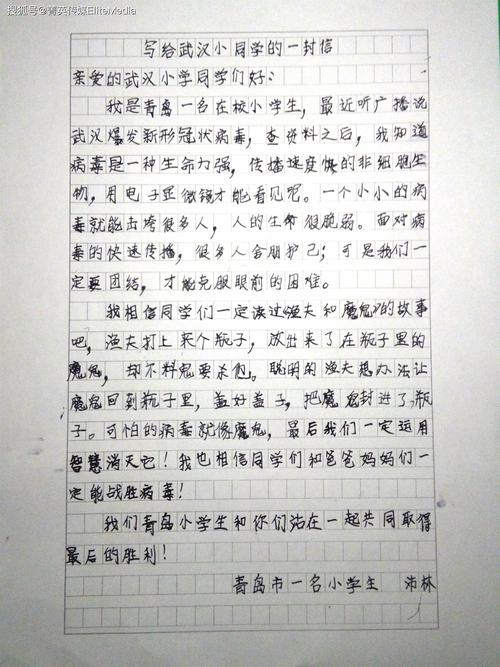 搜狐号@菁英传媒EliteMedia
写给武汉小同学的一封信
亲爱的武汉小学同学们好:
我是青岛一名在校小学生，最近听广播说
武汉爆发新形冠状病毒，查资料之后，我知道
病毒是一种生命力强，传播速度快的非细胞生
物，用电子显微镜才能看见呢。一个小小的病
毒就能击垮很多人，人的生命很脆弱。面对病
毒的快速传播，很多人会朋护己；可是我们一
定要团结，才能克服眼前的困难。
我相信同学们一定读过《渔夫和魔鬼》的故事
吧，渔夫打上来个瓶子，放出来了在瓶子里的
魔鬼，却不料鬼要杀他。聪明的渔夫想办法让
魔鬼回到瓶子里，盖好盖子，把魔鬼封进了瓶
子。可怕的病毒就像魔鬼，最后我们一定运用
智慧消灭它！我也相信同学们和爸爸妈妈们一
定能战胜病毒！
我们青岛小学生和你们站在一起共同取得
最后的胜利！
青岛市一名小学生 沛林